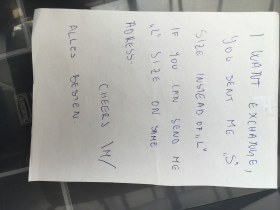 I WANT EXCHANGE,
YOU SENT ME „S"
SIZE INSTEAD OF „L"
IF YOU CAN SEND ME
„L" SIZE ON SAME
ADRESS.
CHEERS \M/
ALLES BESTEN